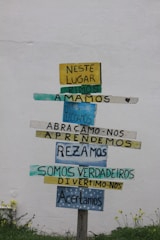 NESTE
LUGAR
AMAMOS
ABRAÇAMO-NOS
APRENDEMOS
REZAMOS
SOMOS VERDADEIROS
DIVERTIMO-NOS
Aceitamos